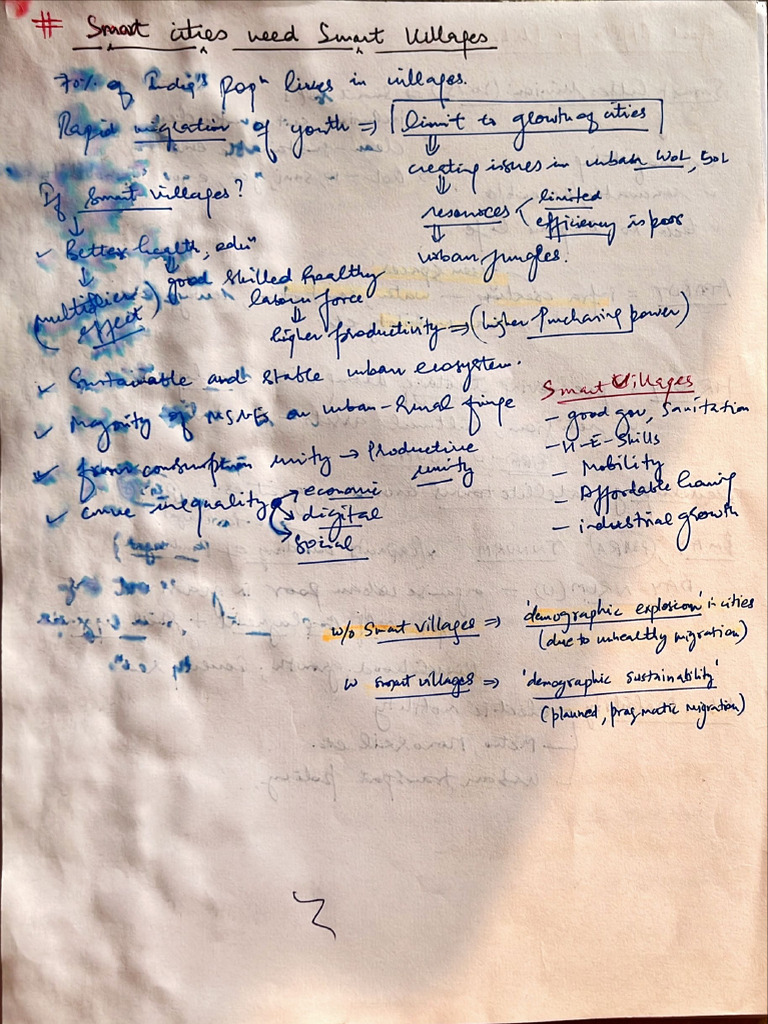 # Smart cities need Smart Villages
70% of India's popⁿ lives in villages.
Rapid migration of youth ⇒ limit to growth of cities
⇓
creating issues in urban WoL, SoL
⇓
resources < limited
efficiency is poor
⇓
urban jungles.
If Smart villages?
↓
✓ Better health, eduⁿ
↓ ↓
(multiplier effect) good skilled healthy
labour force
↓
higher productivity ⇒ (higher Purchasing power)
✓ Sustainable and stable urban ecosystem.
✓ Majority of MSMEs on urban-rural fringe
✓ from consumption unity → Productive unity
✓ inequality → economic
→ digital
→ social
Smart Villages
- good gov, Sanitation
- H-E-Skills
- Mobility
- Affordable
- industrial growth
w/o Smart villages ⇒ 'demographic explosion' in cities
(due to unhealthy migration)
w smart villages ⇒ 'demographic sustainability'
(planned, pragmatic migration)